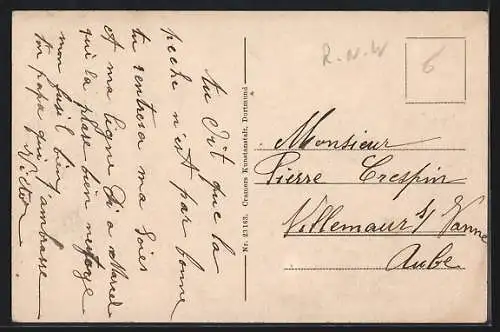 tu Dit que la
peche n'est pas bonne
tu rentrera ma soies
et ma ligne Di a Marcel
qui la place bien nettoye
mon fusil bien j'ambrasse
ton papa qui
Victor
Nr. 23183. Cramers Kunstanstalt, Dortmund
R.N.W
6
Monsieur
Pierre Crespin
Villemaur s/ Vanne
Aube